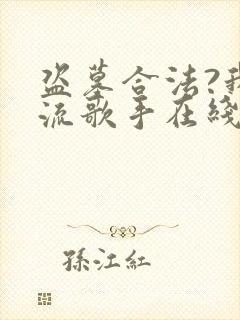 盗墓合法?我
流歌手在綫
孫江紅